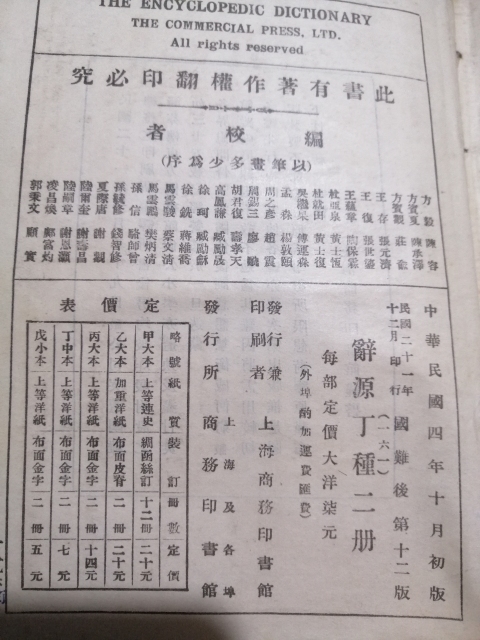 THE ENCYCLOPEDIC DICTIONARY
THE COMMERCIAL PRESS, LTD.
All rights reserved
此書有著作權翻印必究
編校者
(以筆畫多少爲序)
方毅
方賓夏
方賓觀
王存
王復
王蘊華
杜亞泉
杜就田
吳瀓杲
孟森
周之彥
周錫三
胡君復
高鳳謙
徐珂
徐銑
馬雲鵬
孫信
孫毓修
夏際唐
陸爾奎
陸嗣章
凌昌煥
郭秉文
陳容
陳承澤
莊俞
張元濟
張世鎏
陶保霖
黃士恆
黃士復
傅運森
楊敬慈
趙震
廖曉
壽孝天
臧勵龢
臧勵龢
蔣維喬
蔡文清
樊炳清
駱師曾
錢智修
謝觀
謝壽昌
謝恩灝
鄺富灼
顧實
中華民國四年十月初版
民國二十一年
十二月印行
國難後第十二版
(一六一)
辭源丁種二册
每部定價大洋柒元
(外埠酌加運費匯費)
發行兼印刷者
上海商務印書館
發行所
上海及各埠
商務印書館
定價表
略號 紙質 裝訂 冊數 定價
甲大本 上等連史 綢函絲訂 十二冊 二十元
乙大本 加重洋紙 布面皮脊 二冊 二十元
丙大本 上等洋紙 布面金字 二冊 十四元
丁中本 上等洋紙 布面金字 二冊 七元
戊小本 上等洋紙 布面金字 二冊 五元